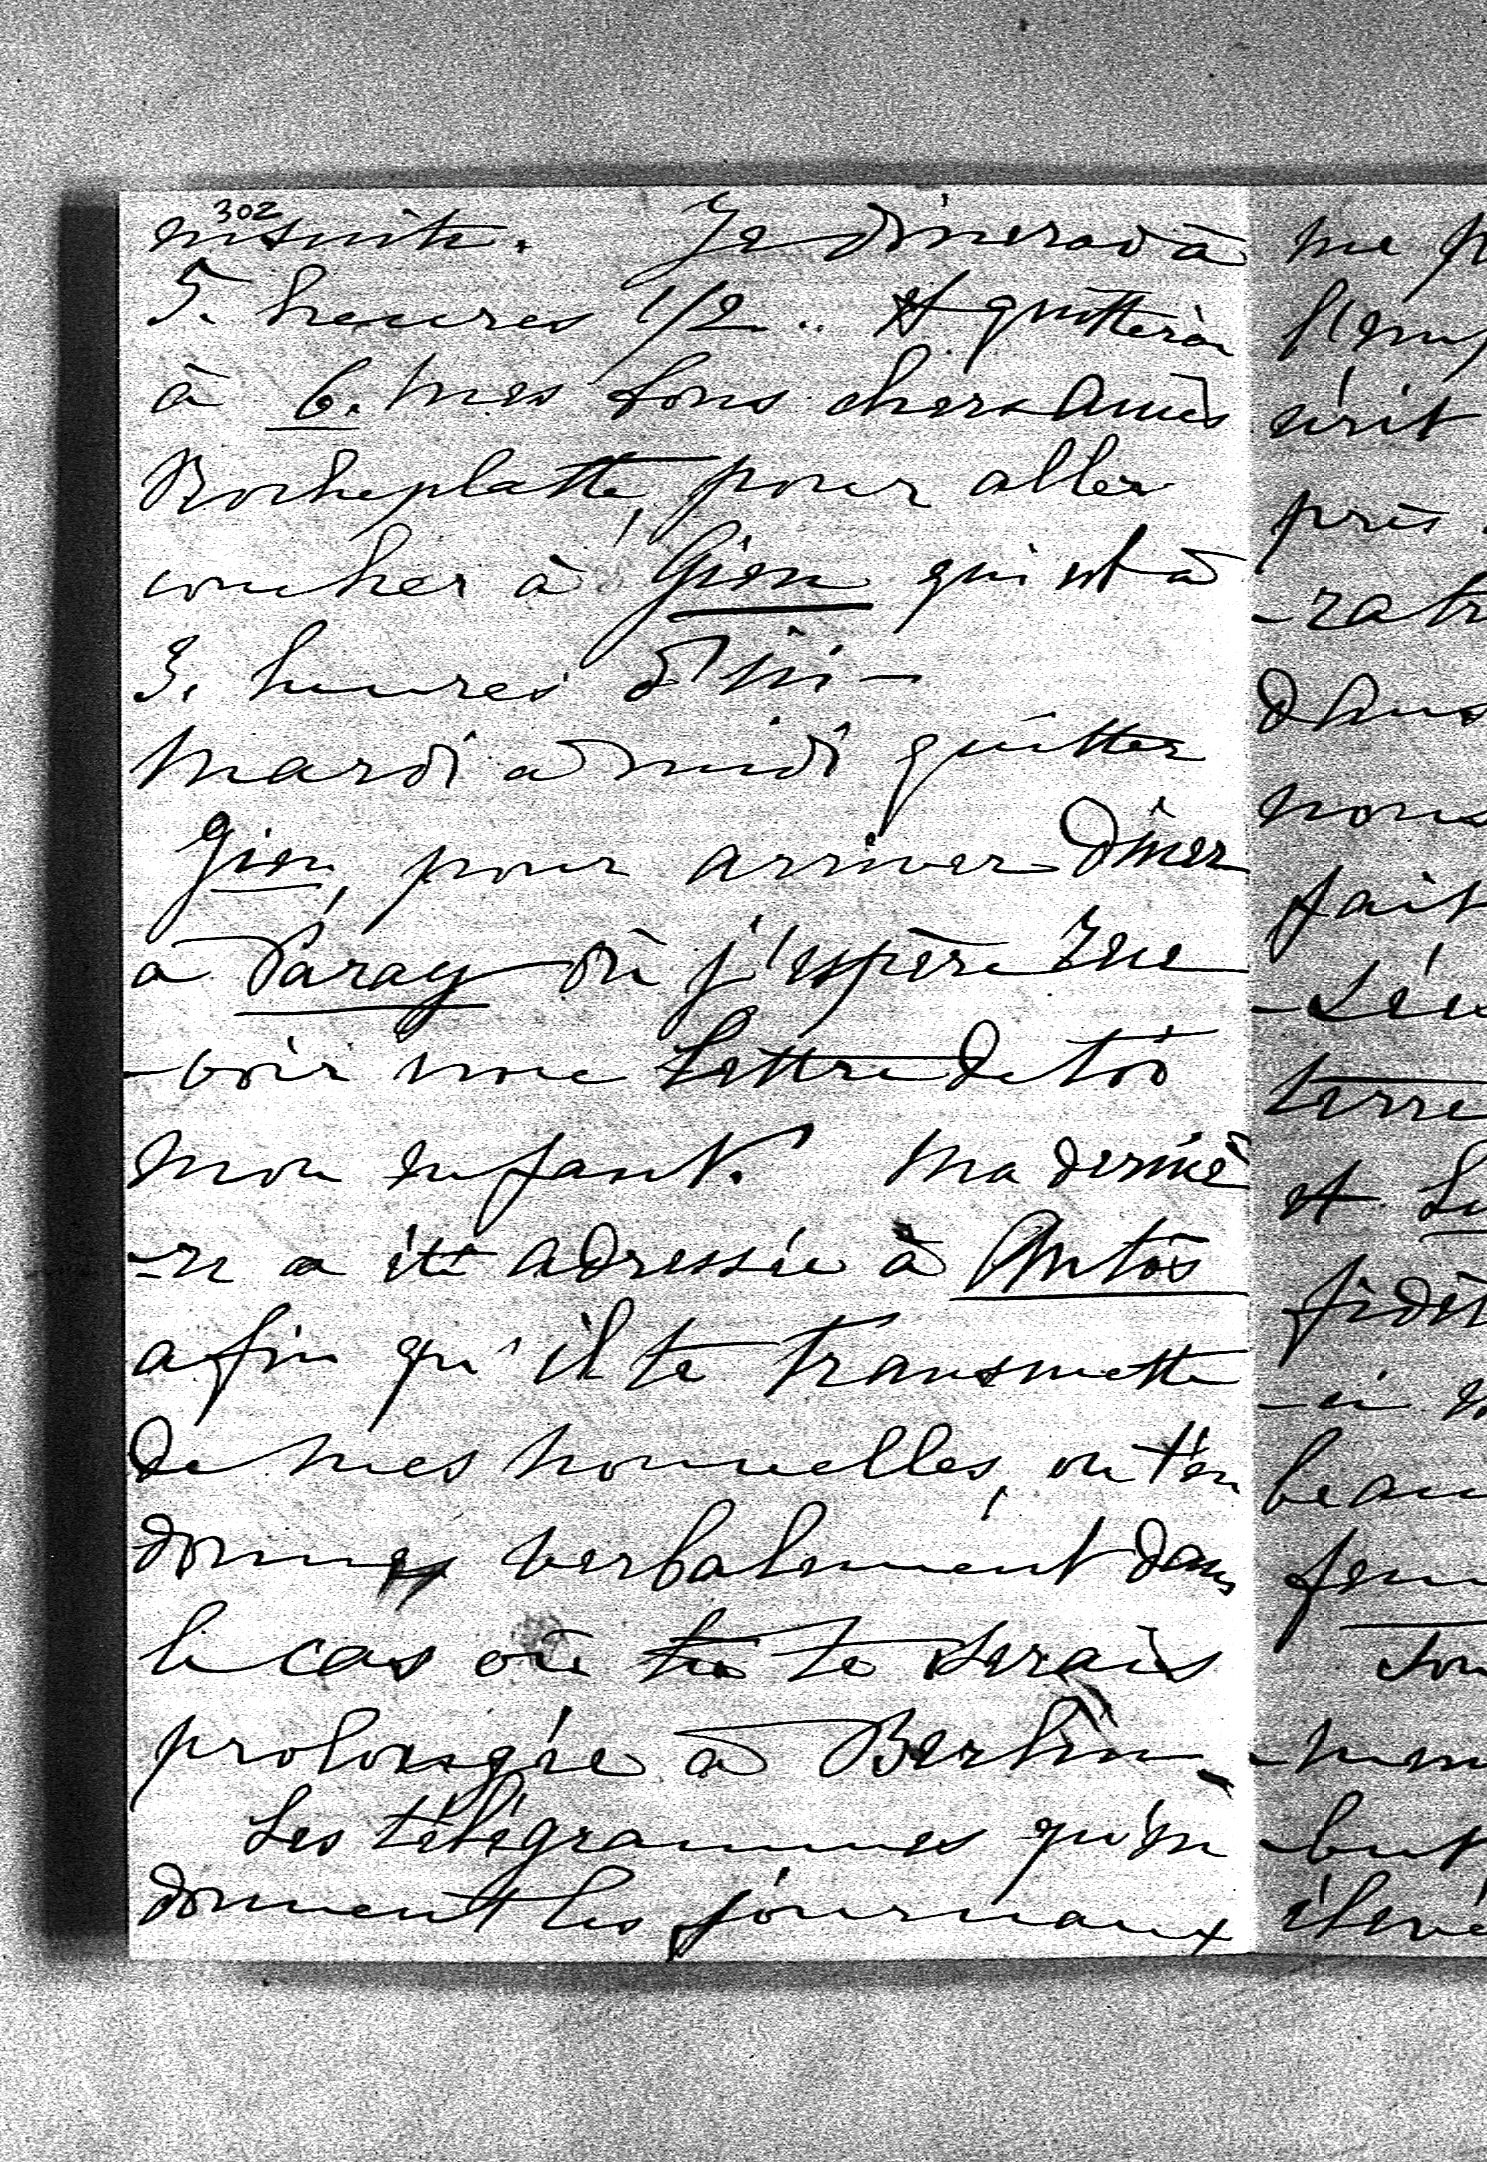 302
ensuite. Je dinerai à
5. heures 1/2.. et quitterai
à 6. mes bons chers amis
Rocheplatte, pour aller
coucher à Gien qui est à
3. heures d'ici —
Mardi à midi quitter
Gien, pour arriver dîner
à Paray où j'espère rece
-voir une lettre de toi
mon enfant. Ma derniè
-re a été adressée à Antos
afin qu'il te transmette
de mes nouvelles, ou t'en
donne verbalement dans
le cas où tu te serais
prolongée à Berlin -
Les télégrammes qu'en
donnent les journaux
me
écrit
près
nous
fait
terre
et